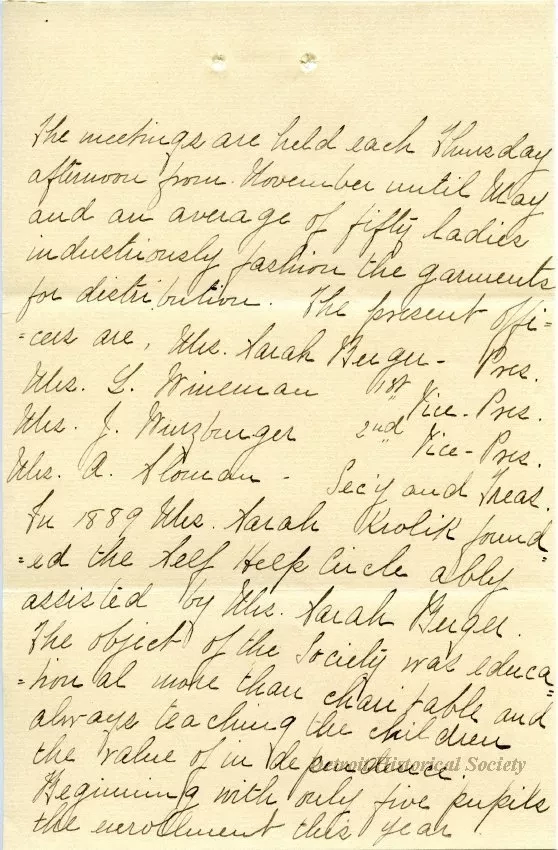 The meetings are held each Thursday
afternoon from November until May
and an average of fifty ladies
industriously fashion the garments
for distribution. The present offi=
=cers are, Mrs. Sarah Berger - Pres.
Mrs. L. Wineman 1st Vice-Pres.
Mrs. J. Wurzburger 2nd Vice-Pres.
Mrs. A. Sloman - Sec'y and Treas.
In 1889 Mrs. Sarah Krolik found=
=ed the Self Help Circle ably
assisted by Mrs. Sarah Berger.
The object of the Society was educa=
=tional more than charitable and
always teaching the children
the value of independence.
Detroit Historical Society
Beginning with only five pupils
the enrollment this year